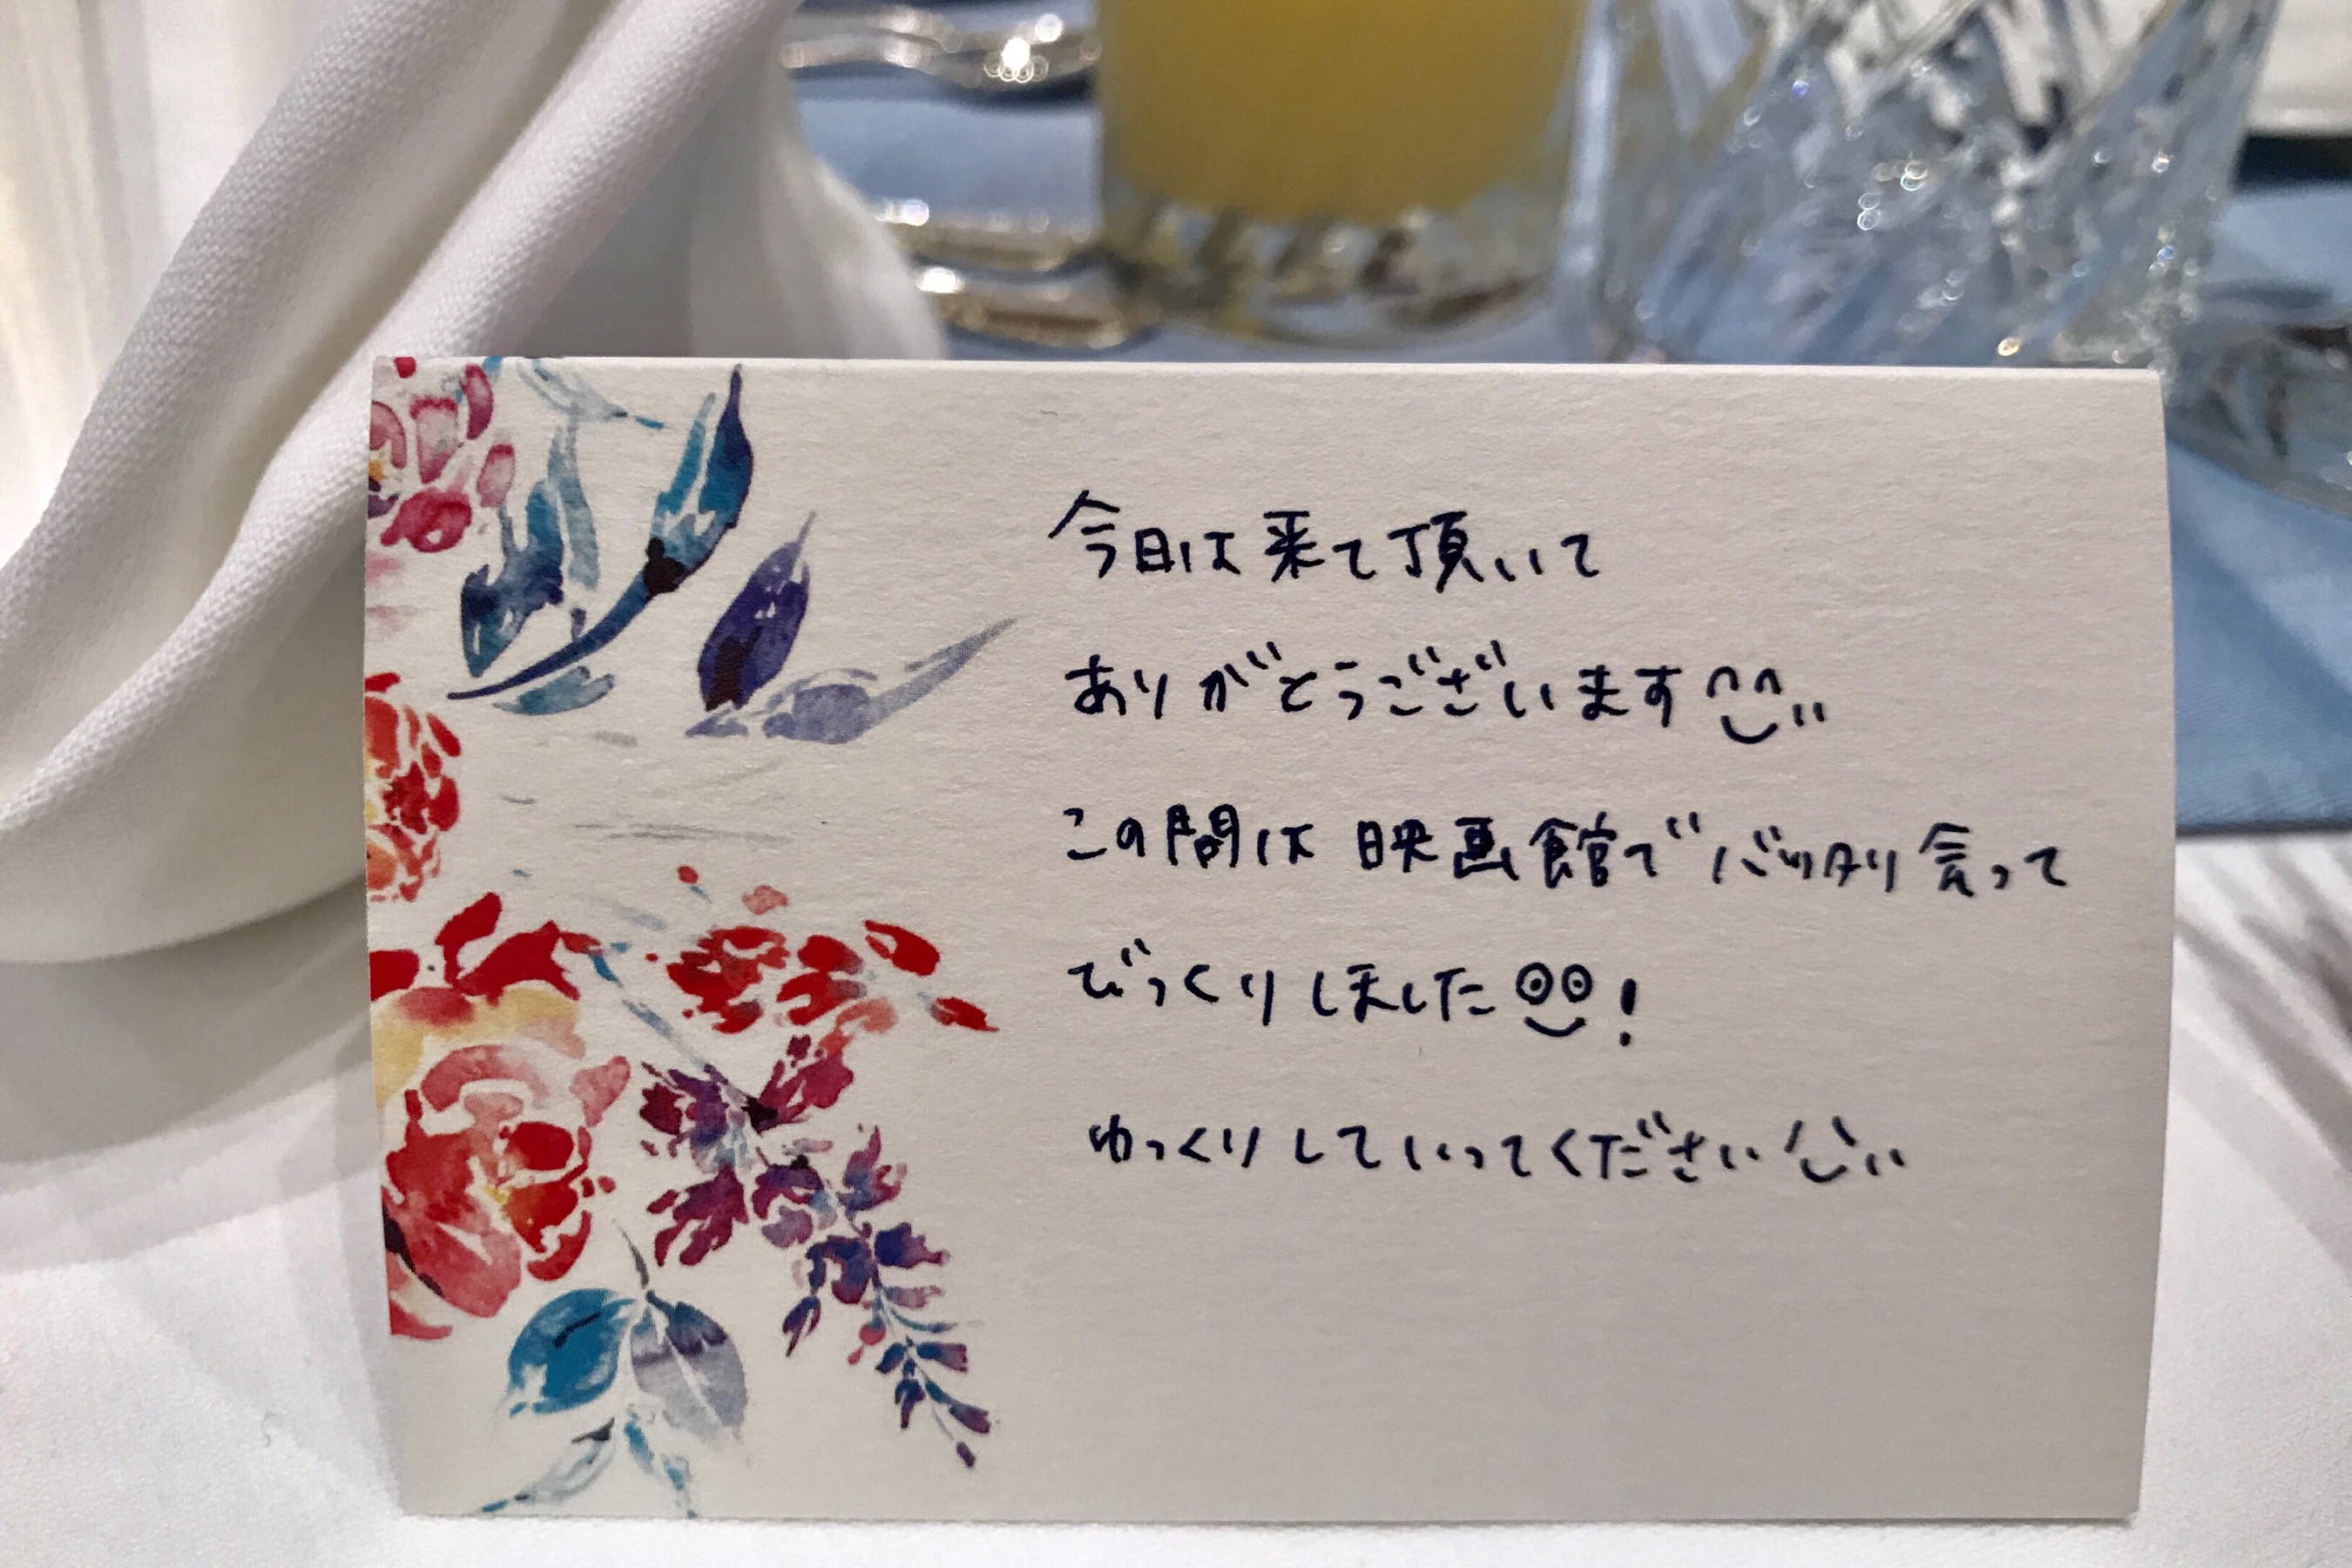 今日は来て頂いて
ありがとうございます
この間は映画館でバッタリ会って
びっくりしました!
ゆっくりしていってください